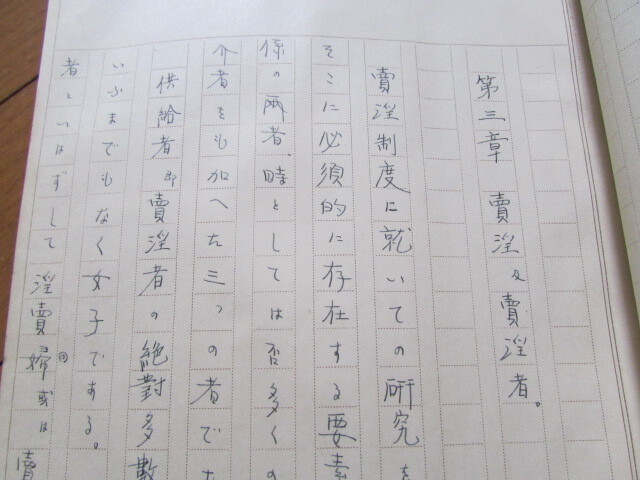 第三章　賣淫及賣淫者。
賣淫制度に就いての研究を
そこに必須的に存在する要素
係の兩者、時としては否多くの
介者をも加へた三つの者でた
供給者即賣淫者の絶對多數
いふまでもなく女子である。
者といはずして淫賣婦或は賣